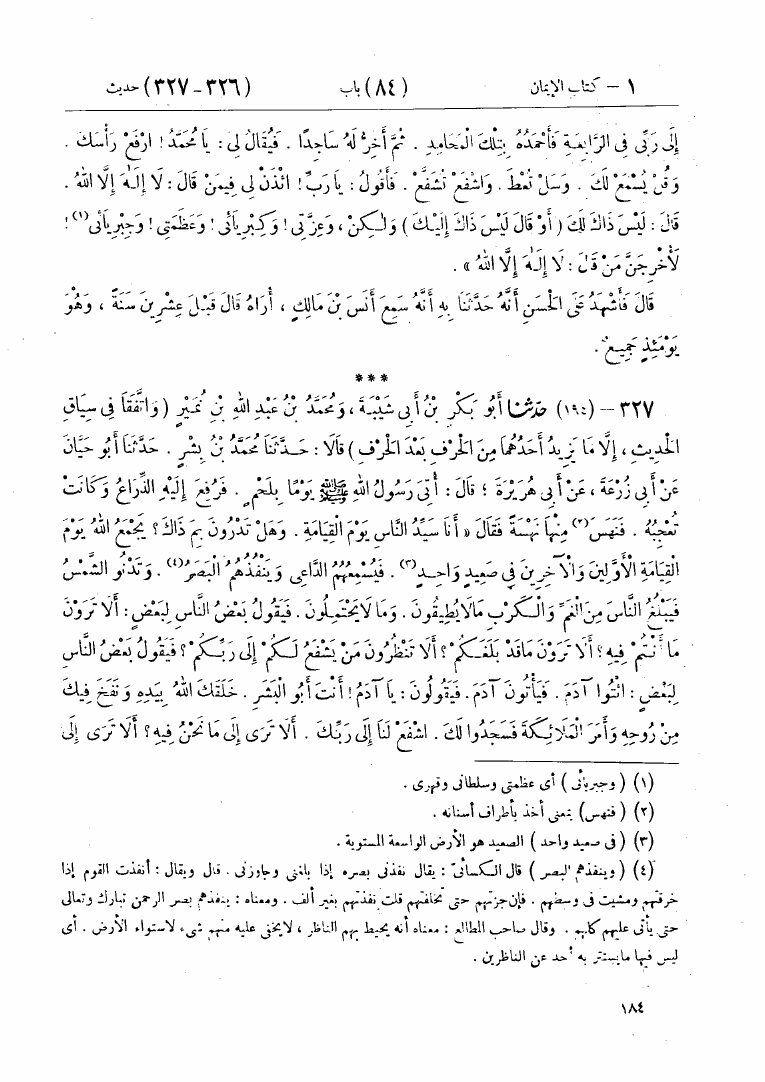 ١ – كتاب الإيمان (٨٤) باب (٣٢٦-٣٢٧) حديث
إِلَى رَبِّى فِى الرَّابِعَةِ فَأَحْمَدُهُ بِتِلْكَ الْمَحَامِدِ . ثُمَّ أَخِرُّ لَهُ سَاجِدًا . فَيُقَالُ لِى : يَا مُحَمَّدُ ! ارْفَعْ رَأْسَكَ .
وَقُلْ يُسْمَعْ لَكَ . وَسَلْ تُعْطَ . وَاشْفَعْ تُشَفَّعْ . فَأَقُولُ : يَا رَبِّ ! ائْذَنْ لِى فِيمَنْ قَالَ : لَا إِلَهَ إِلَّا اللهُ .
قَالَ : لَيْسَ ذَاكَ لَكَ ( أَوْ قَالَ لَيْسَ ذَاكَ إِلَيْكَ ) وَلَكِنْ ، وَعِزَّتِى ! وَكِبْرِيَائى ! وَعَظَمَتِى ! وَجِبْرِيَائى(١) !
لَأُخْرِجَنَّ مَنْ قَالَ : لَا إِلَهَ إِلَّا اللهُ » .
قَالَ فَأَشْهَدُ عَلَى الْحَسَنِ أَنَّهُ حَدَّثَنَا بِهِ أَنَّهُ سَمِعَ أَنَسَ بْنَ مَالِكٍ ، أُرَاهُ قَالَ قَبْلَ عِشْرِينَ سَنَةً ، وَهُوَ
يَوْمَئِذٍ جَمِيعٌ .
***
٣٢٧ – (١٩٤) حَدَّثَنَا أَبُو بَكْرِ بْنُ أَبِى شَيْبَةَ ، وَمُحَمَّدُ بْنُ عَبْدِ اللهِ بْنِ نُمَيْرٍ ( وَاتَّفَقَا فِى سِيَاقِ
الْحَدِيثِ ، إِلَّا مَا يَزِيدُ أَحَدُهُمَا مِنَ الْحَرْفِ بَعْدَ الْحَرْفِ ) قَالَا : حَدَّثَنَا مُحَمَّدُ بْنُ بِشْرٍ . حَدَّثَنَا أَبُو حَيَّانَ
عَنْ أَبِى زُرْعَةَ ، عَنْ أَبِى هُرَيْرَةَ ؛ قَالَ : أُتِىَ رَسُولُ اللهِ ﷺ يَوْمًا بِلَحْمٍ . فَرُفِعَ إِلَيْهِ الذِّرَاعُ وَكَانَتْ
تُعْجِبُهُ . فَنَهَسَ(٢) مِنْهَا نَهْسَةً فَقَالَ « أَنَا سَيِّدُ النَّاسِ يَوْمَ الْقِيَامَةِ . وَهَلْ تَدْرُونَ بِمَ ذَاكَ ؟ يَجْمَعُ اللهُ يَوْمَ
الْقِيَامَةِ الْأَوَّلِينَ وَالْآخِرِينَ فِى صَعِيدٍ وَاحِدٍ(٣) . فَيُسْمِعُهُمُ الدَّاعِى وَيَنْفُذُهُمُ الْبَصَرُ(٤) . وَتَدْنُو الشَّمْسُ
فَيَبْلُغُ النَّاسَ مِنَ الْغَمِّ وَالْكَرْبِ مَا لَا يُطِيقُونَ . وَمَا لَا يَحْتَمِلُونَ . فَيَقُولُ بَعْضُ النَّاسِ لِبَعْضٍ : أَلَا تَرَوْنَ
مَا أَنْتُمْ فِيهِ ؟ أَلَا تَرَوْنَ مَا قَدْ بَلَغَكُمْ ؟ أَلَا تَنْظُرُونَ مَنْ يَشْفَعُ لَكُمْ إِلَى رَبِّكُمْ ؟ فَيَقُولُ بَعْضُ النَّاسِ
لِبَعْضٍ : ائْتُوا آدَمَ . فَيَأْتُونَ آدَمَ . فَيَقُولُونَ : يَا آدَمُ ! أَنْتَ أَبُو الْبَشَرِ . خَلَقَكَ اللهُ بِيَدِهِ وَنَفَخَ فِيكَ
مِنْ رُوحِهِ وَأَمَرَ الْمَلَائِكَةَ فَسَجَدُوا لَكَ . اشْفَعْ لَنَا إِلَى رَبِّكَ . أَلَا تَرَى إِلَى مَا نَحْنُ فِيهِ ؟ أَلَا تَرَى إِلَى
(١) ( وجبريائى ) أى عظمتى وسلطانى وقهرى .
(٢) ( فنهس ) بمعنى أخذ بأطراف أسنانه .
(٣) ( فى صعيد واحد ) الصعيد هو الأرض الواسعة المستوية .
(٤) ( وينفذهم البصر ) قال الكسائىّ : يقال نفذنى بصره إذا بلغنى وجاوزنى . قال ويقال : أنفذت القوم إذا
خرقتهم ومشيت فى وسطهم . فإن جزتهم حتى تخلفتهم قلت نفذتهم بغير ألف . ومعناه : ينفذهم بصر الرحمن تبارك وتعالى
حتى يأتى عليهم كلهم . وقال صاحب المطالع : معناه أنه يحيط بهم الناظر ، لا يخفى عليه منهم شىء لاستواء الأرض . أى
ليس فيها ما يستتر به أحد عن الناظرين .
١٨٤